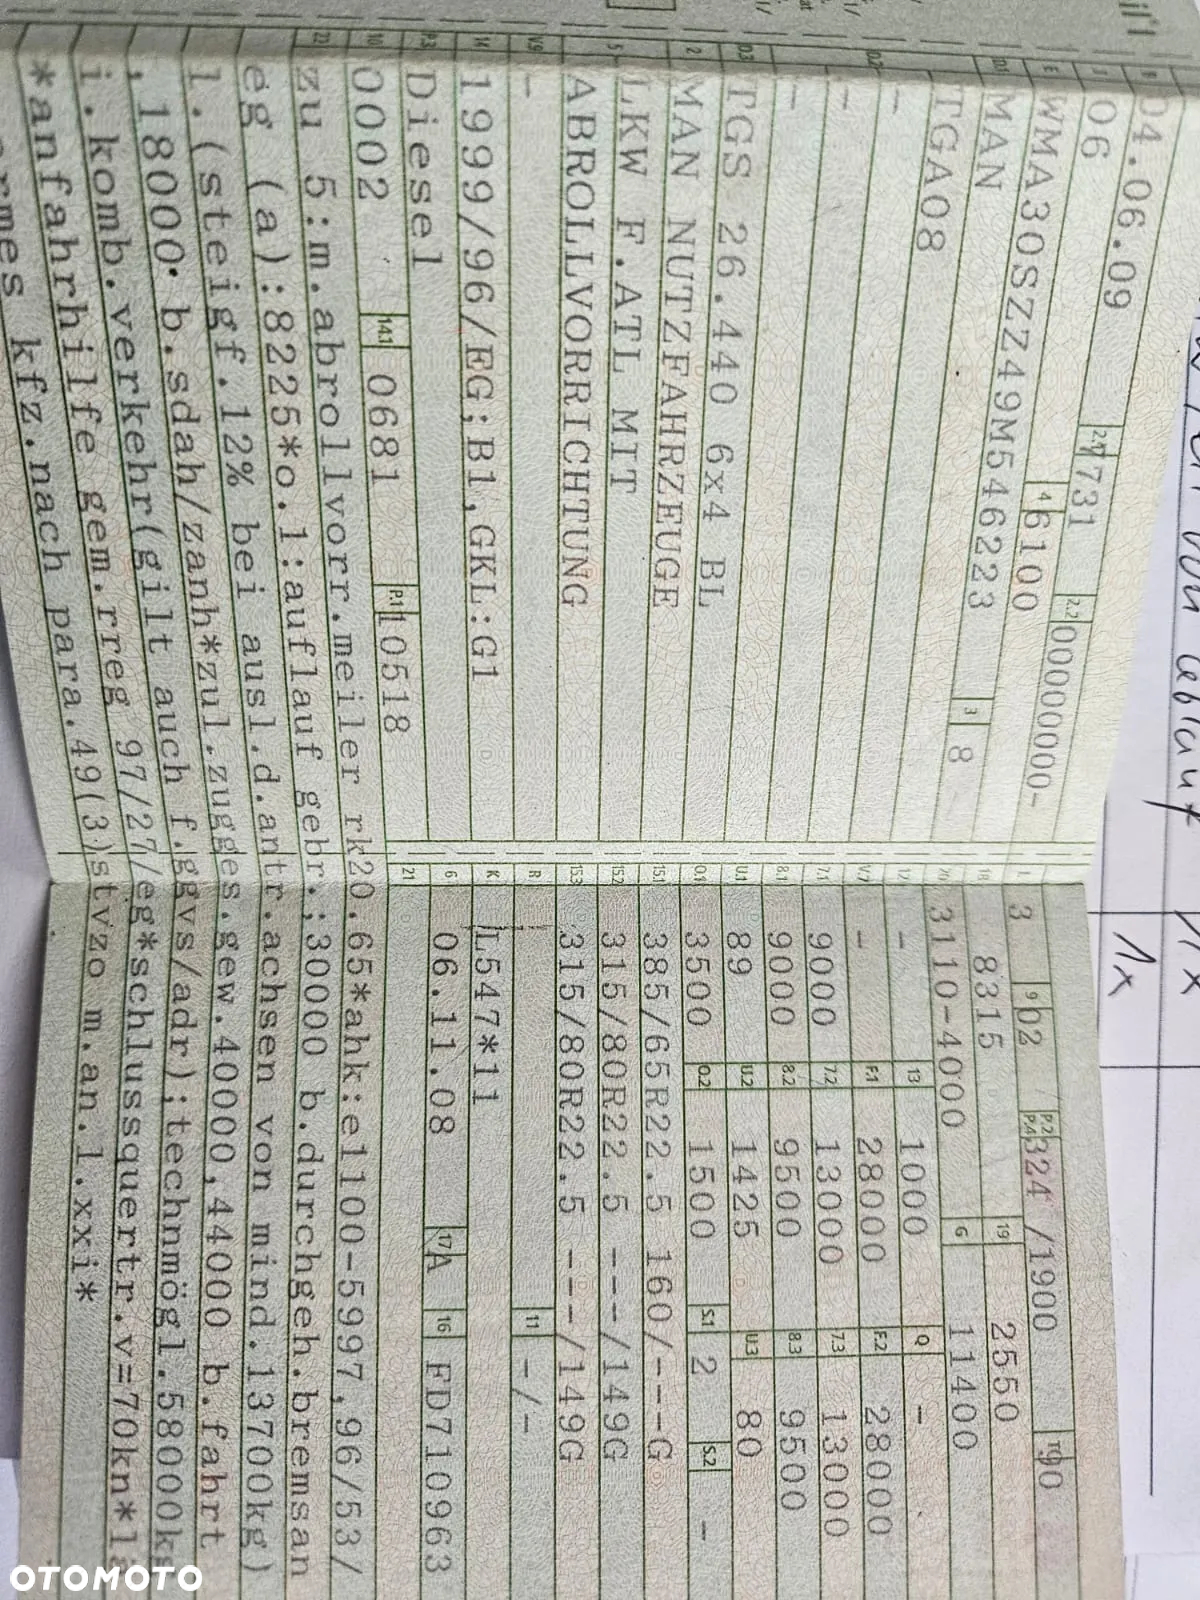 B 04.06.09 2.1 7731 2.2 00000000-
J 06 4 6100
E WMA30SZZ49M546223 3 8
D.1 MAN
TGA08
D.2 -
-
-
D.3 TGS 26.440 6x4 BL
2 MAN NUTZFAHRZEUGE
5 LKW F.ATL MIT
ABROLLVORRICHTUNG
V.9 -
14 1999/96/EG;B1,GKL:G1
P.3 Diesel
10 0002 14.1 0681 P.1 10518
L 3 9 02 P.2 P.4 324 /1900 T 90
18 8315 19 2550
20 3110-4000 G 11400
12 - 13 1000 Q -
V.7 - F.1 28000 F.2 28000
7.1 9000 7.2 13000 7.3 13000
8.1 9000 8.2 9500 8.3 9500
U.1 89 U.2 1425 U.3 80
O.1 3500 O.2 1500 S.1 2 S.2 -
15.1 385/65R22.5 160/---G
15.2 315/80R22.5 ---/149G
15.3 315/80R22.5 ---/149G
R 11 -/-
K L547*11
6 06.11.08 17 A 16 FD710963
21
22 zu 5:m.abrollvorr.meiler rk20.65*ahk:e1100-5997,96/53/
eg (a):8225*o.1:auflauf gebr.;30000 b.durchgeh.bremsan
l.(steigf.12% bei ausl.d.antr.achsen von mind.13700kg)
,18000 b.sdah/zanh*zul.zugges.gew.40000,44000 b.fahrt
i.komb.verkehr(gilt auch f.ggvs/adr);technmögl.58000kg
*anfahrhilfe gem.rreg 97/27/eg*schlussquertr.v=70kn*lä
rmes kfz.nach para.49(3)stvzo m.an.l.xxi*
von
1x
1x
OTOMOTO